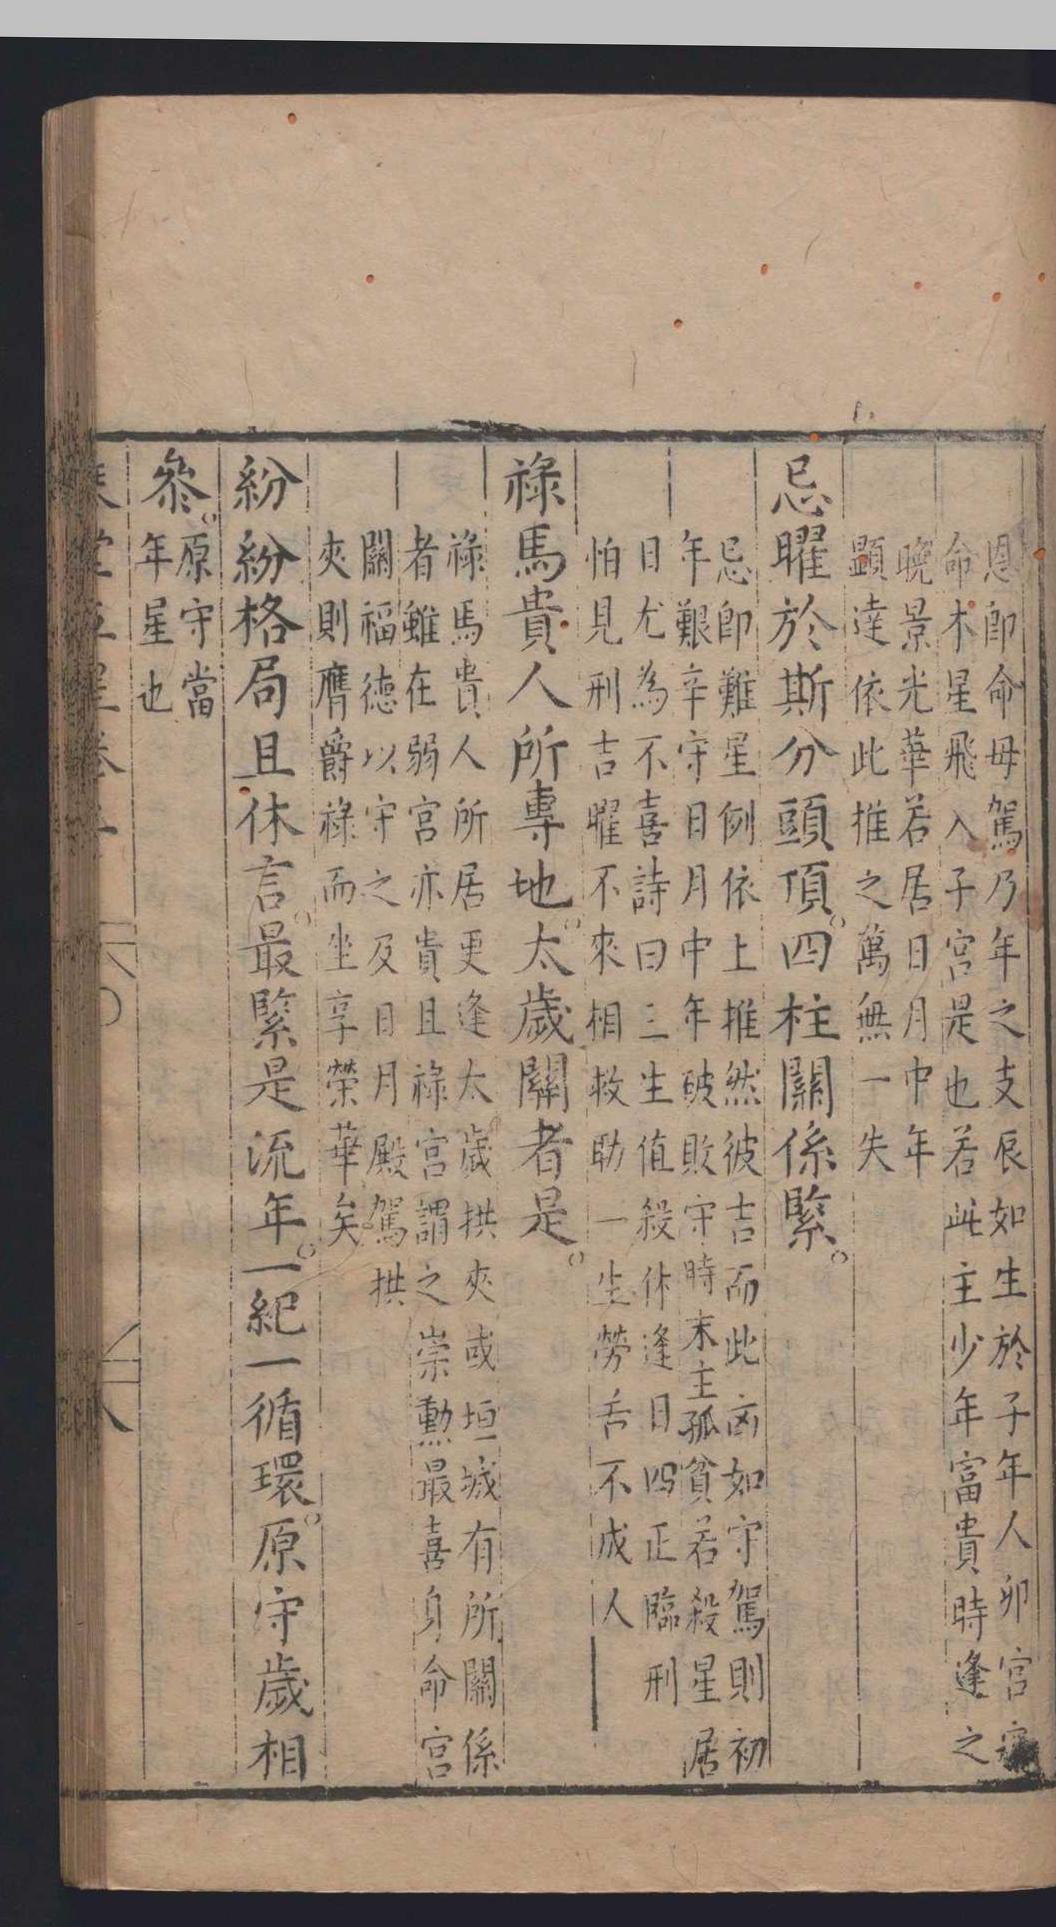 恩即命母駕乃年之支辰如生於子年人卯宮
命木星飛入子宮是也若此主少年富貴時逢之
晚景光華若居日月中年
顯達依此推之萬無一失
忌曜於斯分頭頂四柱關係緊
忌即難星例依上推然彼吉而此凶如守駕則初
年艱辛守日月中年破敗守時末主孤貧若殺星居
日尤為不喜詩曰三生值殺休逢日四正臨刑
怕見刑吉曜不來相救助一生勞舌不成人
祿馬貴人所專地太歲關者是
祿馬貴人所居更逢太歲拱夾或垣城有所關係
者雖在弱宮亦貴且祿宮謂之崇勳最喜身命宮
關福德以守之及日月殿駕拱
夾則膺爵祿而坐享榮華矣
紛紛格局且休言最緊是流年一紀一循環原守歲相
參原守當
年星也
堂五星卷